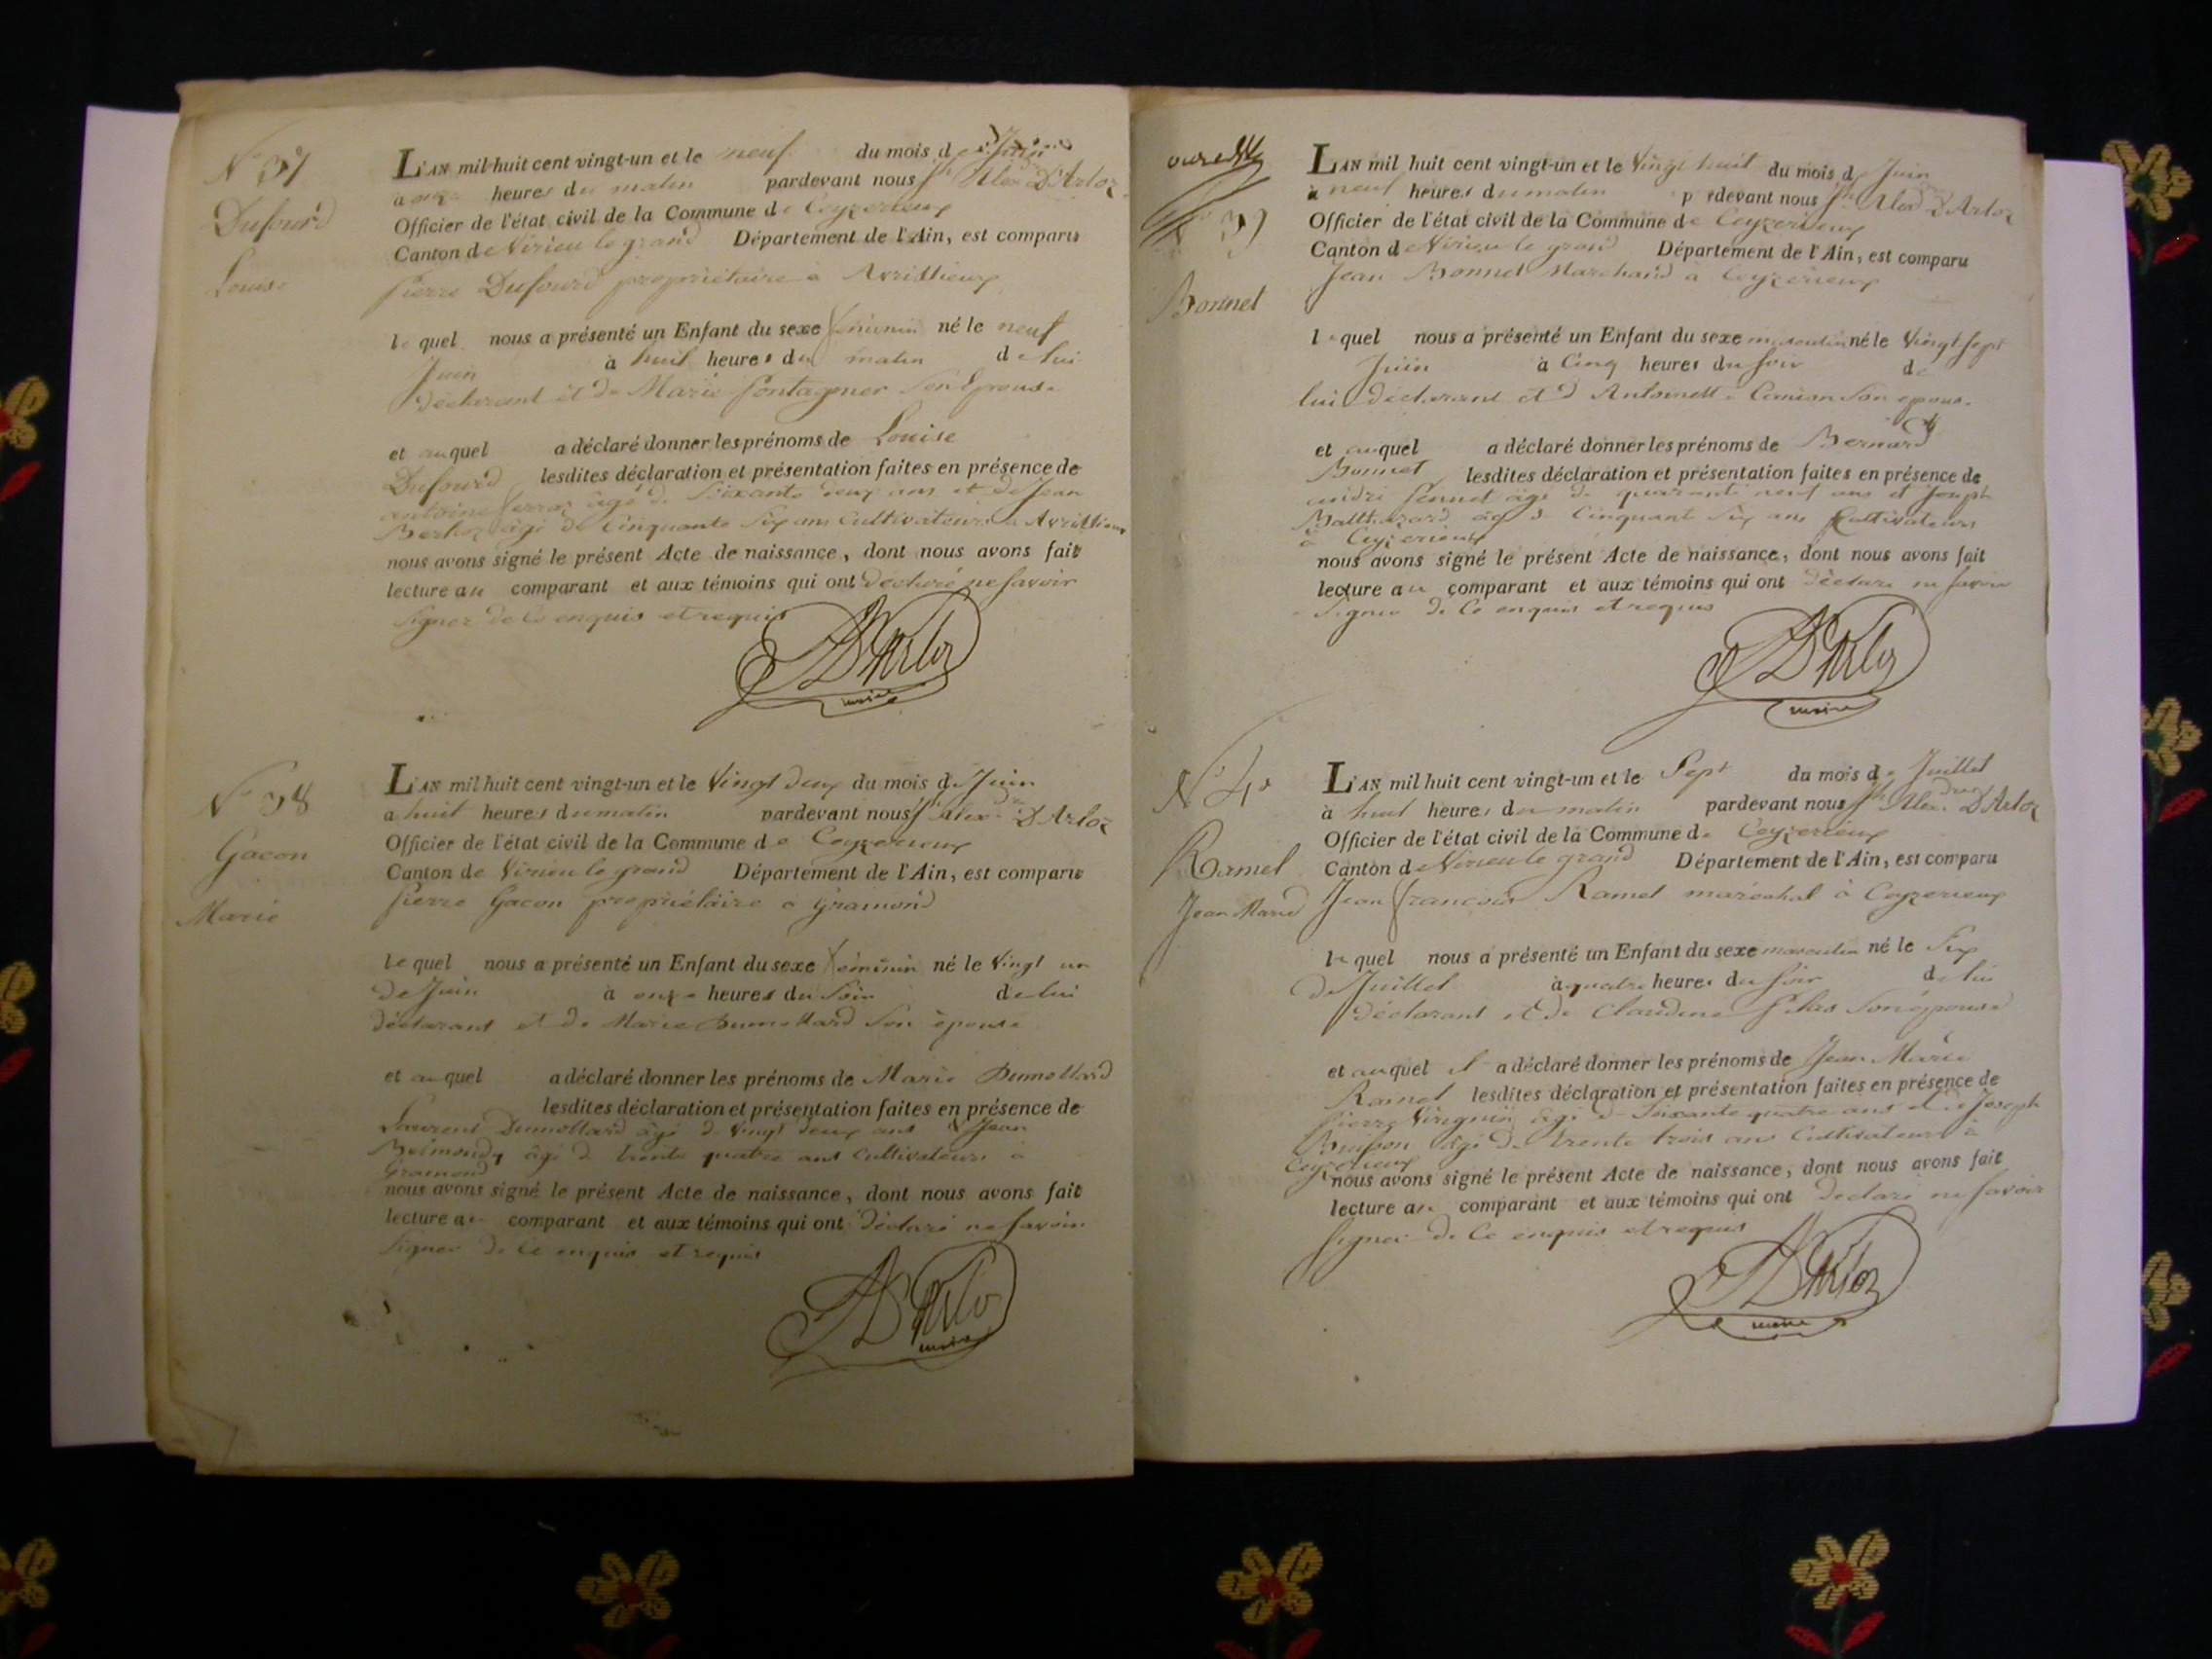 N° 37
Dufourd
Louise
L'AN mil huit cent vingt-un et le neuf du mois de Juin
à onze heures du matin pardevant nous Jh Alex. D'Arloz
Officier de l'état civil de la Commune de Ceyzerieux
Canton de Virieu le grand Département de l'Ain, est comparu
pierre Dufourd propriétaire à Avrillieux
le quel nous a présenté un Enfant du sexe féminin né le neuf
Juin à huit heures du matin de lui
déclarant et de Marie fontagner Son Epouse
et auquel a déclaré donner les prénoms de Louise
Dufourd lesdites déclaration et présentation faites en présence de
antoine âgé de Soixante deux ans et de Jean
âgé de Cinquante Six ans Cultivateurs à Avrillieux
nous avons signé le présent Acte de naissance, dont nous avons fait
lecture au comparant et aux témoins qui ont déclaré ne savoir
signer de Ce enquis et requis
D'Arloz
maire
N° 38
Gacon
Marie
L'AN mil huit cent vingt-un et le Vingt deux du mois de Juin
à huit heures du matin pardevant nous Jh Alexdre D'Arloz
Officier de l'état civil de la Commune de Ceyzerieux
Canton de Virieu le grand Département de l'Ain, est comparu
pierre Gacon propriétaire à Gramond
le quel nous a présenté un Enfant du sexe féminin né le Vingt un
de Juin à onze heures du Soir de lui
déclarant et de Marie Dumollard Son épouse
et auquel a déclaré donner les prénoms de Marie Dumollard
lesdites déclaration et présentation faites en présence de
Laurent Dumollard âgé de Vingt deux ans & Jean
Belmondy âgé de trente quatre ans Cultivateurs à
Gramond
nous avons signé le présent Acte de naissance, dont nous avons fait
lecture au comparant et aux témoins qui ont déclaré ne savoir
signer de Ce enquis et requis
D'Arloz
maire
N° 39
Bonnet
L'AN mil huit cent vingt-un et le Vingt huit du mois de Juin
à neuf heures du matin pardevant nous Jh Alexdre D'Arloz
Officier de l'état civil de la Commune de Ceyzerieux
Canton de Virieu le grand Département de l'Ain, est comparu
Jean Bonnet Marchand à Ceyzerieux
lequel nous a présenté un Enfant du sexe masculin né le Vingt sept
Juin à Cinq heures du Soir de
lui déclarant et d'Antoinette Camion Son épouse
et auquel a déclaré donner les prénoms de Bernard
Bonnet lesdites déclaration et présentation faites en présence de
andré âgé de quarante neuf ans et Joseph
Balthazard âgé de Cinquante Six ans Cultivateurs
à Ceyzerieux
nous avons signé le présent Acte de naissance, dont nous avons fait
lecture au comparant et aux témoins qui ont déclaré ne savoir
Signer de Ce enquis et requis
D'Arloz
maire
N° 40
Ramel
Jean Marie
L'AN mil huit cent vingt-un et le Sept du mois de Juillet
à huit heures du matin pardevant nous Jh Alexdre D'Arloz
Officier de l'état civil de la Commune de Ceyzerieux
Canton de Virieu le grand Département de l'Ain, est comparu
Jean francois Ramel maréchal à Ceyzerieux
le quel nous a présenté un Enfant du sexe masculin né le Six
de Juillet à quatre heures du Soir de lui
déclarant et de Claudine Son épouse
et auquel il a déclaré donner les prénoms de Jean Marie
Ramel lesdites déclaration et présentation faites en présence de
pierre âgé de Soixante quatre ans et de Joseph
Buisson âgé de trente trois ans Cultivateurs à
Ceyzerieux
nous avons signé le présent Acte de naissance, dont nous avons fait
lecture au comparant et aux témoins qui ont déclaré ne savoir
signer de Ce enquis et requis
D'Arloz
maire